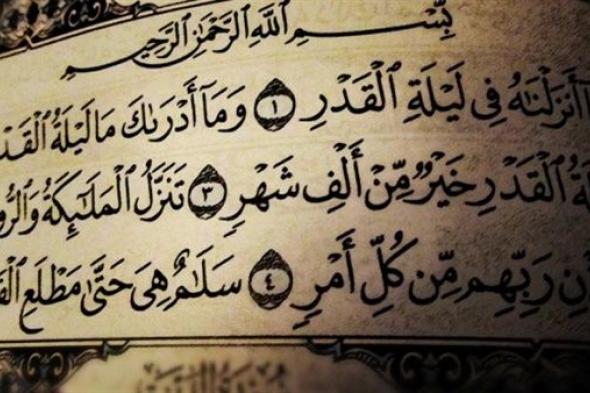 بِسْمِ ٱللَّهِ ٱلرَّحْمَٰنِ ٱلرَّحِيمِ
أَنزَلْنَٰهُ فِى لَيْلَةِ ٱلْقَدْرِ ١ وَمَآ أَدْرَىٰكَ مَا لَيْلَةُ ٱلْقَدْ
ٱلْقَدْرِ خَيْرٌ مِّنْ أَلْفِ شَهْرٍ ٣ تَنَزَّلُ ٱلْمَلَٰٓئِكَةُ وَٱلرُّو
رَبِّهِم مِّن كُلِّ أَمْرٍ ٤ سَلَٰمٌ هِىَ حَتَّىٰ مَطْلَعِ